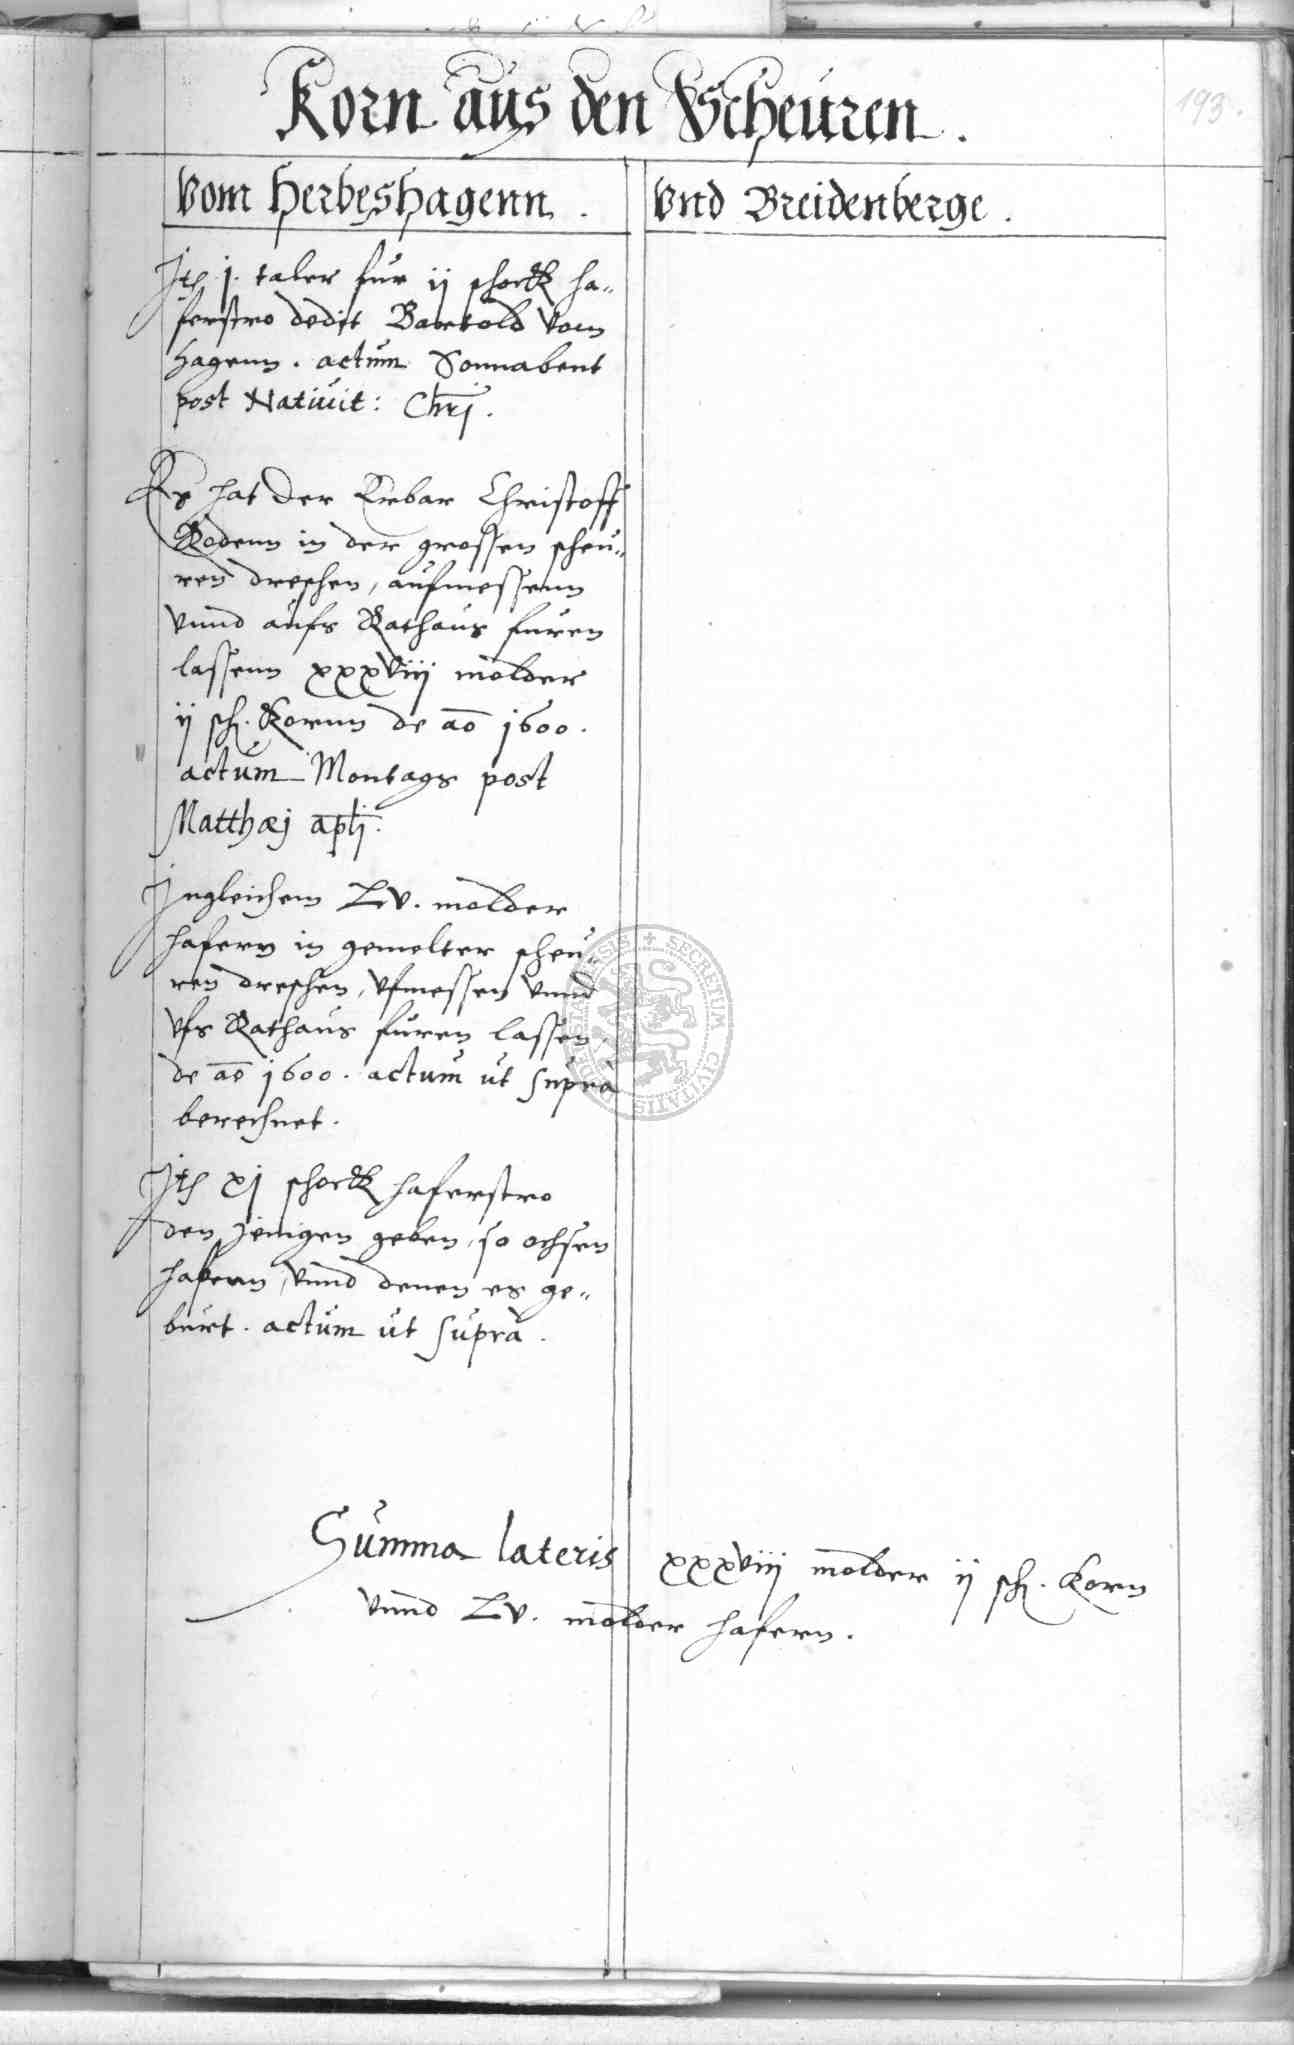 Korn aus den Scheuren.
193.
Vom Herbeshagenn.
Vnd Breidenberge.
Jtem j. taler fur ij schock ha„
ferstro dedit Bartold vom
Hagenn. actum Sonnabent
post Natiuit: Chrj.
Es hat der Erbar Christoff
Rodenn in der grossen scheu„
ren dreschen, aufmessenn
vnnd aufs Rathaus furen
lassenn xxxviij molder
ij sch. Kornn de ao 1600.
actum Montags post
Matthæj aplj.
Jngleichem Lv. molder
hafern in gemelter scheu„
ren dreschen, vfmessen vnnd
vfs Rathaus furen lassen,
de ao 1600. actum ut supra
berechnet.
Jtem xj schock haferstro
den jenigen geben, so ochsen
haben, vnnd denen es ge„
burt. actum ut supra.
Summa lateris xxxviij molder ij sch. Korn
vnnd Lv. molder hafern.
SECRETUM CIVITATIS